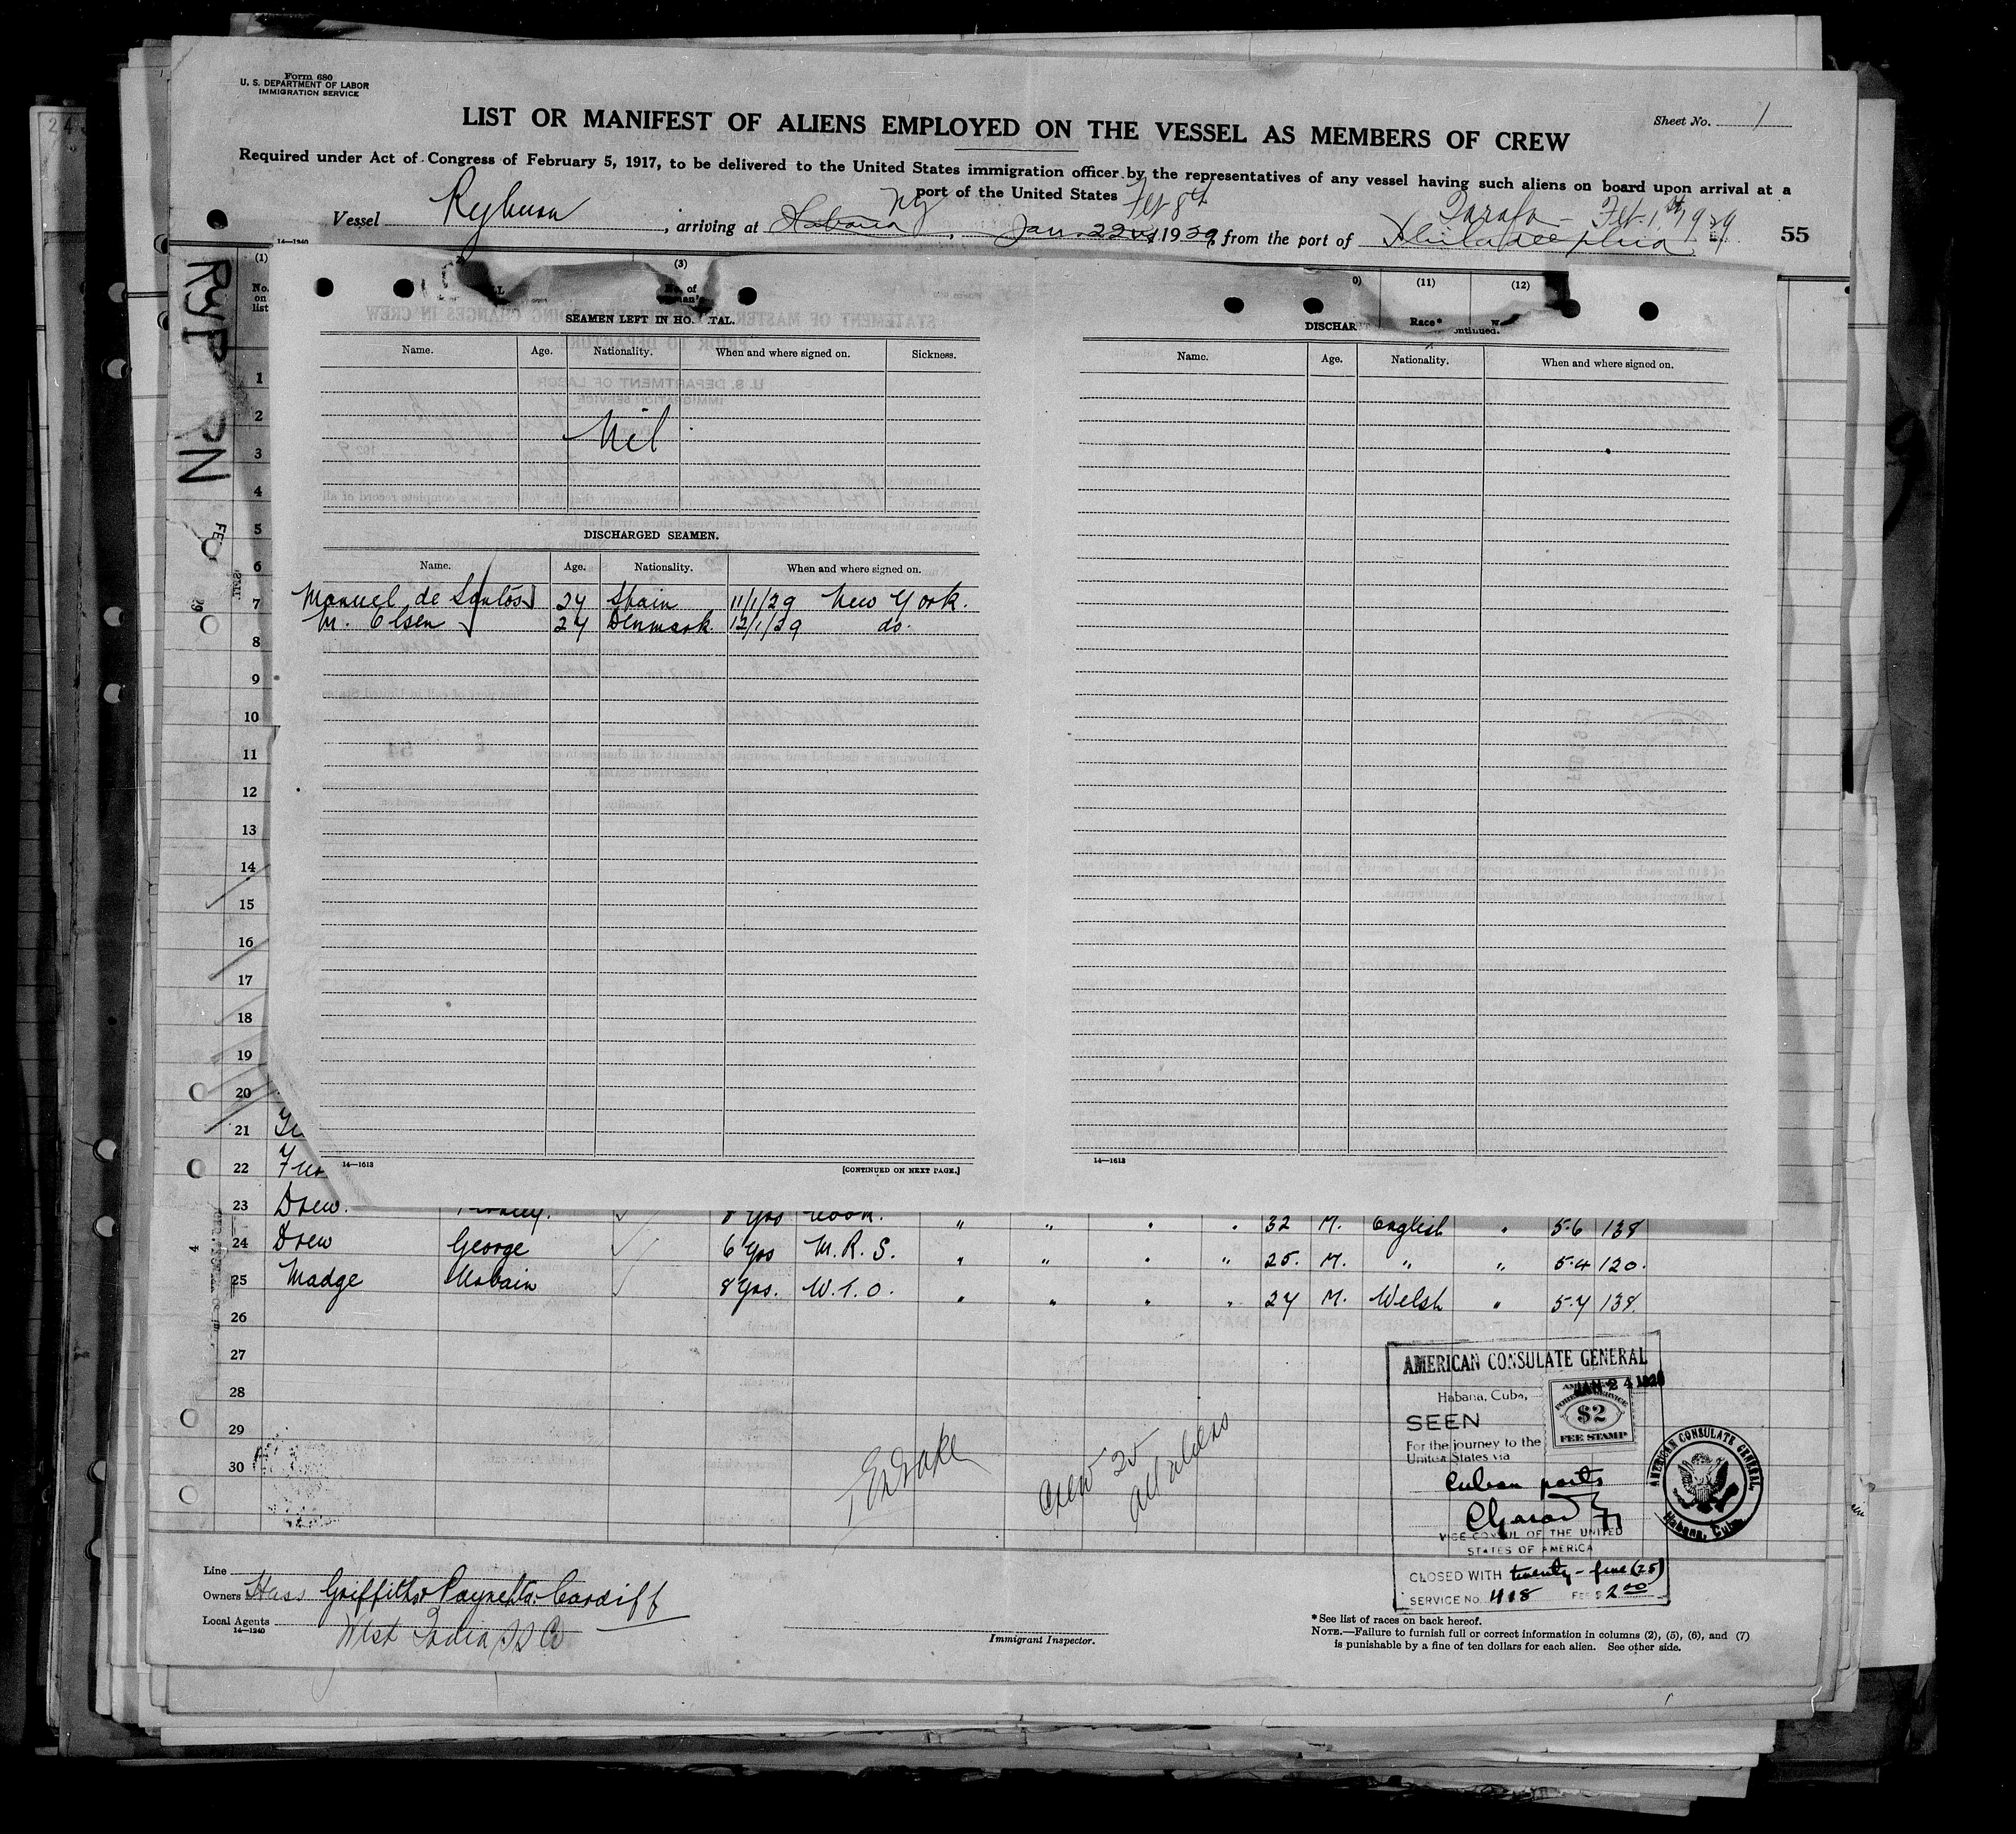 Form 680
U. S. DEPARTMENT OF LABOR
IMMIGRATION SERVICE
Sheet No. 1
LIST OR MANIFEST OF ALIENS EMPLOYED ON THE VESSEL AS MEMBERS OF CREW
Required under Act of Congress of February 5, 1917, to be delivered to the United States immigration officer by the representatives of any vessel having such aliens on board upon arrival at a
port of the United States
NY Feb 8th Tarafa - Feb. 1st 1929
Vessel , arriving at Habana, Jan. 22nd 1929, from the port of Philadelphia
55
14—1240
(1) (3) (11) (12)
No. on list
Race*
SEAMEN LEFT IN
Name. Age. Nationality. When and where signed on. Sickness.
Nil
DISCHARGED SEAMEN.
Name. Age. Nationality. When and where signed on.
Manuel de Santos 24 Spain 11/1/29 New York.
M. Olsen 24 Denmark 12/1/29 do.
14—1613
[CONTINUED ON NEXT PAGE.]
Name. Age. Nationality. When and where signed on.
14—1613
1
2
3
4
5
6
7
8
9
10
11
12
13
14
15
16
17
18
19
20
21
22
23 Drew. 8 yrs Cook. " " " " 32 M. English " 5-6 138
24 Drew George 6 yrs M. R. S. " " " " 25. M. " " 5-4 120.
25 Madge 8 yrs. W. T. O. " " " " 24 M. Welsh " 5-7 138
26
27
28
29
30
Crew 25
all aliens
AMERICAN CONSULATE GENERAL
JAN 24 1929
Habana, Cuba,
SEEN
For the journey to the
United States via
Cuban ports
VICE CONSUL OF THE UNITED
STATES OF AMERICA
CLOSED WITH twenty-five (25)
SERVICE No. 418 FEE $ 2.00
$2
FEE STAMP
AMERICAN CONSULATE GENERAL
Habana, Cuba.
Line
Owners Griffiths Payne Cardiff
Local Agents West India S S Co
14—1240
Immigrant Inspector.
*See list of races on back hereof.
NOTE.—Failure to furnish full or correct information in columns (2), (5), (6), and (7)
is punishable by a fine of ten dollars for each alien. See other side.